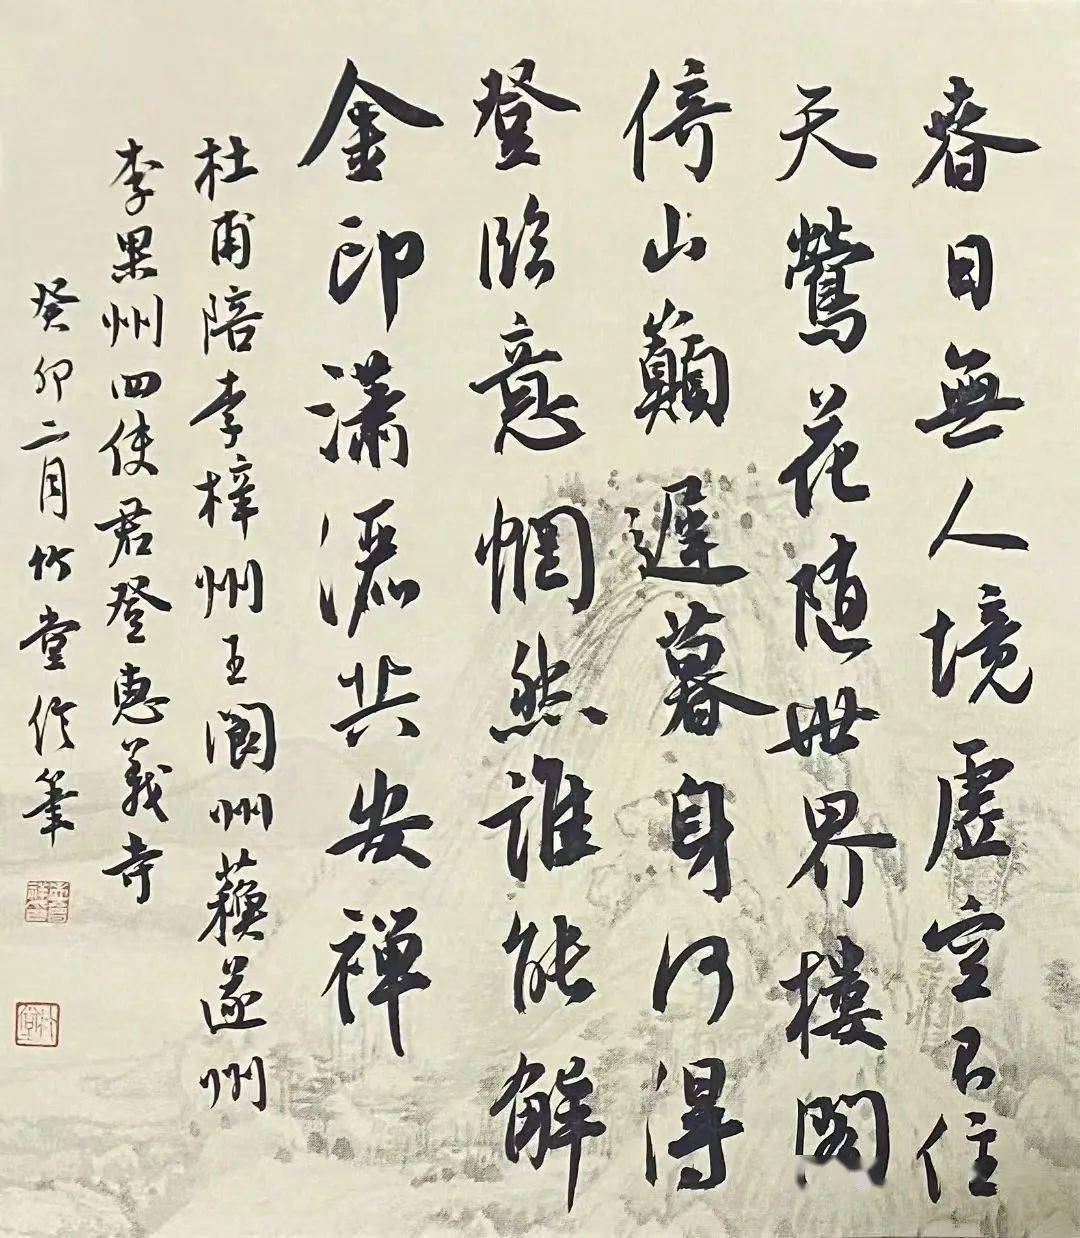 春日無人境虛空不住
天鶯花随世界樓閣
倚山巔遲暮身何得
登臨意惘然誰能解
金印瀟灑共安禪
杜甫陪李梓州王閬州蘇遂州
李果州四使君登惠義寺
癸卯二月竹堂筆